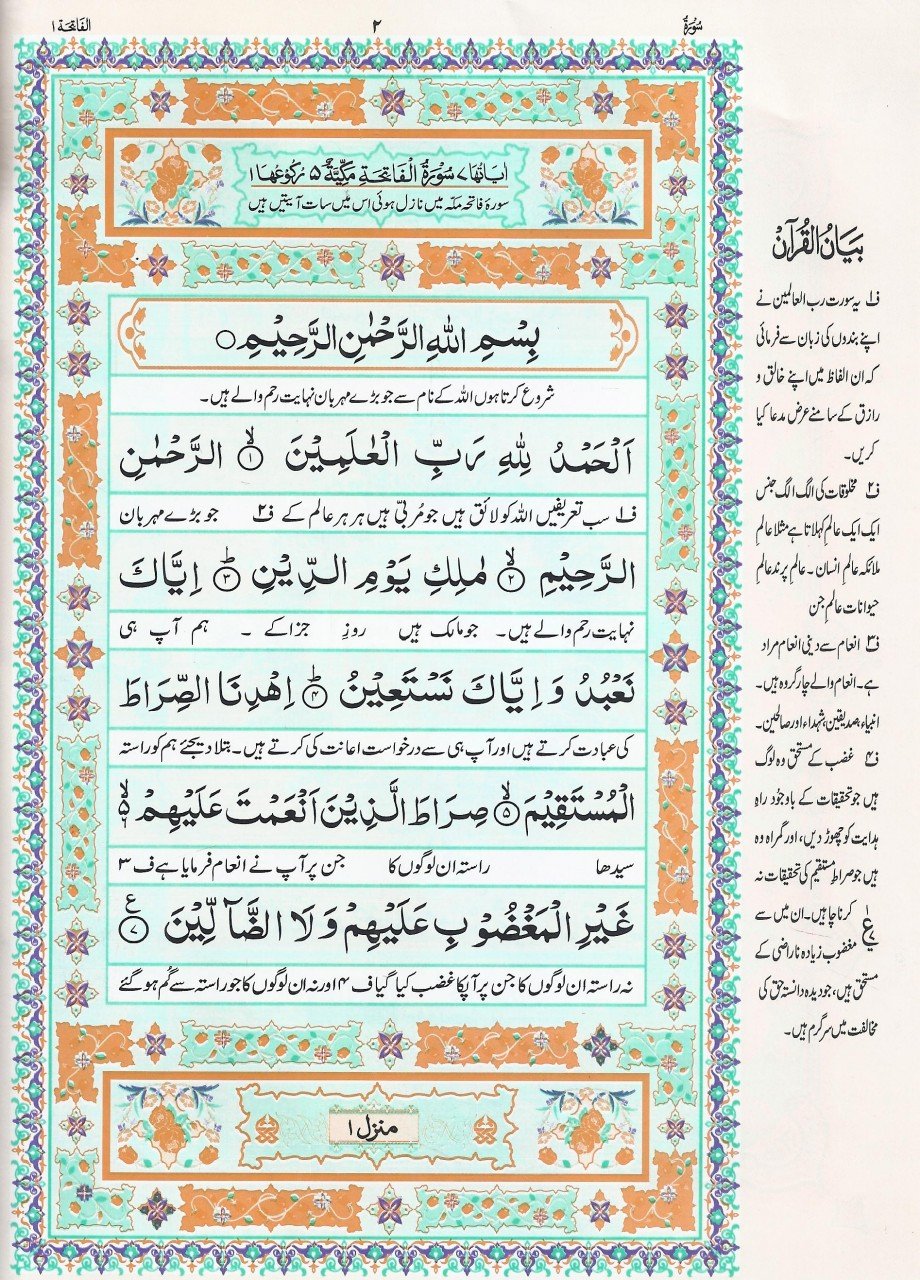 سُوْرَةُ
۲
الفَاتِحَة ۱
اٰيَاتُهَا ۷ سُوْرَةُ الْفَاتِحَةِ مَكِّيَّةٌ ۵ رُكُوْعُهَا ۱
سورۂ فاتحہ مکہ میں نازل ہوئی اس میں سات آیتیں ہیں
بِسْمِ اللّٰهِ الرَّحْمٰنِ الرَّحِيْمِ ○
شروع کرتا ہوں اللہ کے نام سے جو بڑے مہربان نہایت رحم والے ہیں۔
اَلْحَمْدُ لِلّٰهِ رَبِّ الْعٰلَمِيْنَ ۙ﴿۱﴾ الرَّحْمٰنِ
ف۱ سب تعریفیں اللہ کو لائق ہیں جو مُربّی ہیں ہر ہر عالم کے ف۲ جو بڑے مہربان
الرَّحِيْمِ ۙ﴿۲﴾ مٰلِكِ يَوْمِ الدِّيْنِ ؕ﴿۳﴾ اِيَّاكَ
نہایت رحم والے ہیں۔ جو مالک ہیں روزِ جزا کے ۔ ہم آپ ہی
نَعْبُدُ وَ اِيَّاكَ نَسْتَعِيْنُ ؕ﴿۴﴾ اِهْدِنَا الصِّرَاطَ
کی عبادت کرتے ہیں اور آپ ہی سے درخواست اعانت کی کرتے ہیں۔ بتلا دیجئے ہم کو راستہ
الْمُسْتَقِيْمَ ۙ﴿۵﴾ صِرَاطَ الَّذِيْنَ اَنْعَمْتَ عَلَيْهِمْ ۙ۬
سیدھا راستہ ان لوگوں کا جن پر آپ نے انعام فرمایا ہے ف ۳
غَيْرِ الْمَغْضُوْبِ عَلَيْهِمْ وَ لَا الضَّآلِّيْنَ ﴿۷﴾ ع
نہ راستہ ان لوگوں کا جن پر آپکا غضب کیا گیا ف ۴ اور نہ ان لوگوں کا جو راستہ سے گُم ہو گئے
منزل ۱
بَیَانُ الْقُرآن
ف۱ یہ سورت رب العالمین نے
اپنے بندوں کی زبان سے فرمائی
کہ ان الفاظ میں اپنے خالق و
رازق کے سامنے عرض مدعا کیا
کریں۔
ف۲ مخلوقات کی الگ الگ جنس
ایک ایک عالم کہلاتا ہے مثلا عالم
ملائکہ عالم انسان۔ عالم پرند عالم
حیوانات عالم جن
ف۳ انعام سے دینی انعام مراد
ہے۔ انعام والے چار گروہ ہیں۔
انبیاء، صدیقین، شہداء اور صالحین۔
ف۴ غضب کے مستحق وہ لوگ
ہیں جو تحقیقات کے باوجُود راہِ
ہدایت کو چھوڑ دیں، اور گمراہ وہ
ہیں جو صراطِ مستقیم کی تحقیقات نہ
کرنا چاہیں۔ ان میں سے
مغضوب زیادہ ناراضی کے
مستحق ہیں، جو دیدہ دانستہ حق کی
مخالفت میں سرگرم ہیں۔
۱
ع
۷